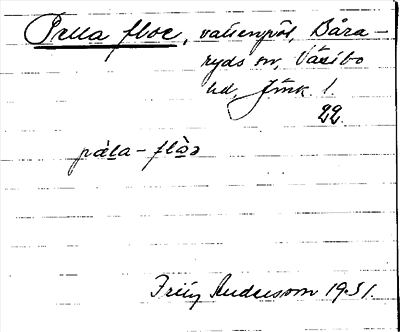 Pella floe, vattenpöl, Båra-
ryds sn, Västbo
hd, Jönk l.
22.
pàla-flòə
Fritz Andersson 1931.